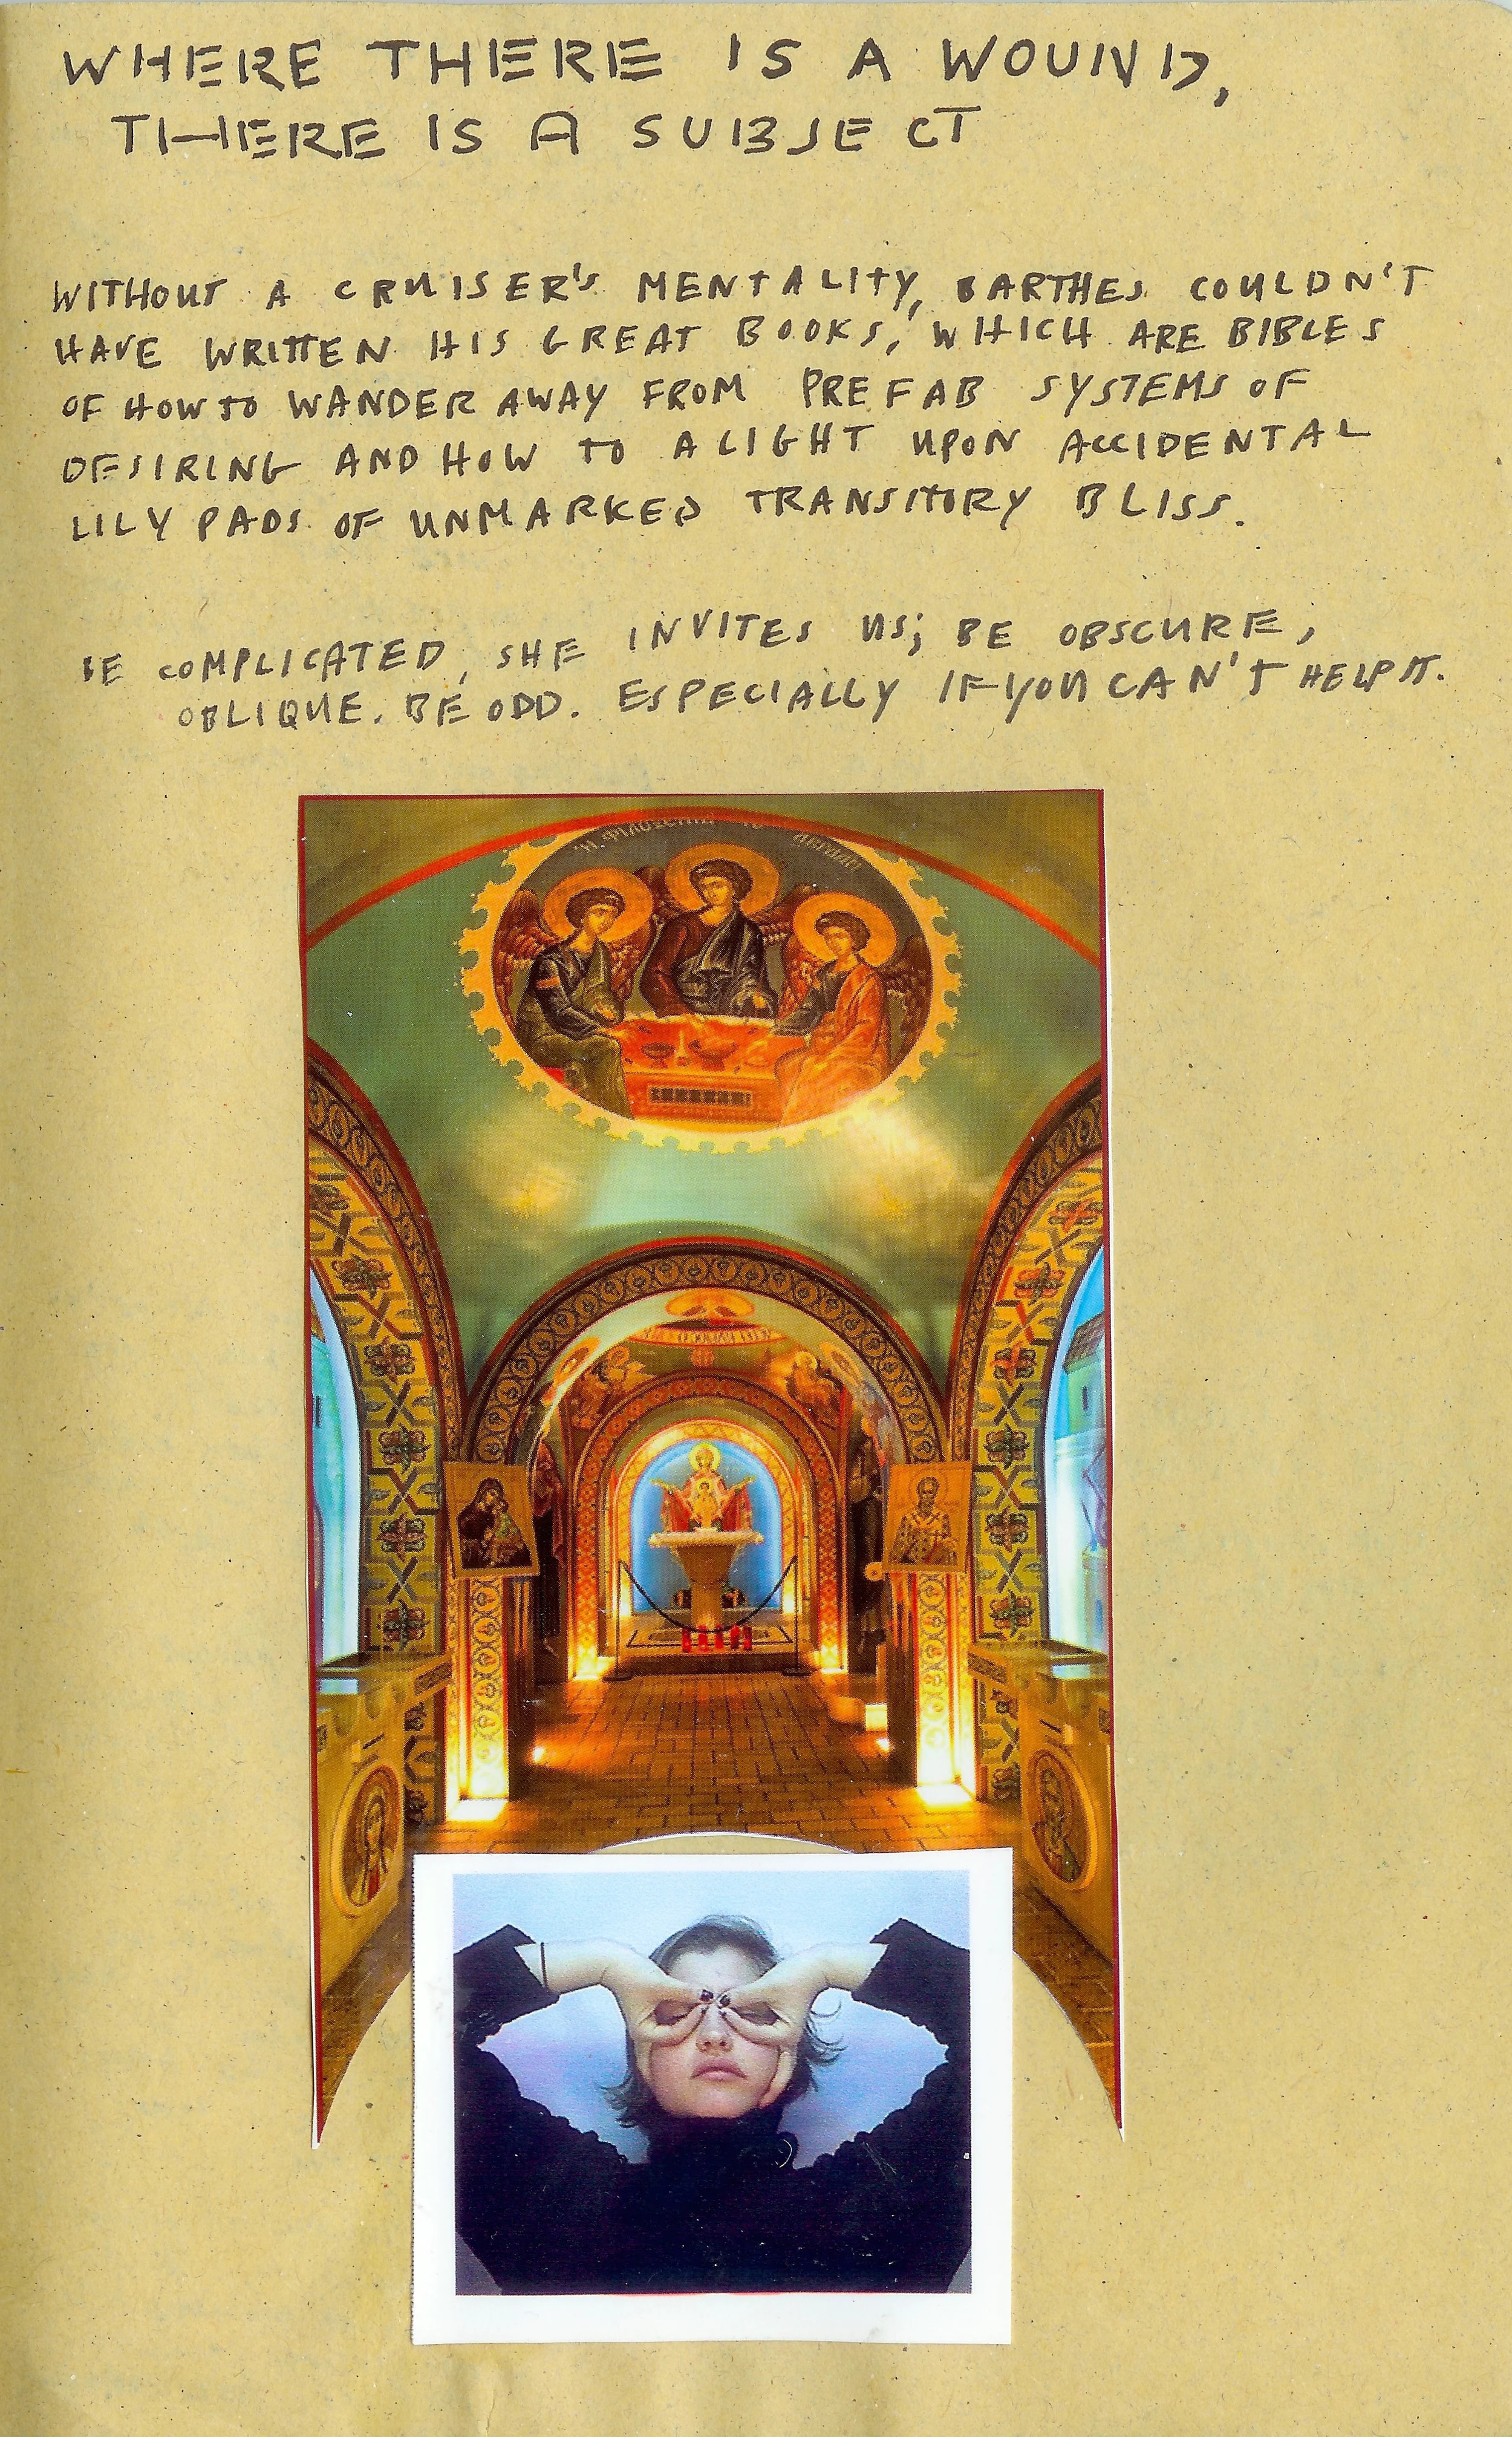 WHERE THERE IS A WOUND,
THERE IS A SUBJECT
WITHOUT A CRUISER'S MENTALITY, BARTHES COULDN'T
HAVE WRITTEN HIS GREAT BOOKS, WHICH ARE BIBLES
OF HOW TO WANDER AWAY FROM PREFAB SYSTEMS OF
DESIRING AND HOW TO ALIGHT UPON ACCIDENTAL
LILY PADS OF UNMARKED TRANSITORY BLISS.
BE COMPLICATED, SHE INVITES US; BE OBSCURE,
OBLIQUE. BE ODD. ESPECIALLY IF YOU CAN'T HELP IT.
Ἡ ΦΙΛΟΞΕΝΙΑ ΤΟΥ